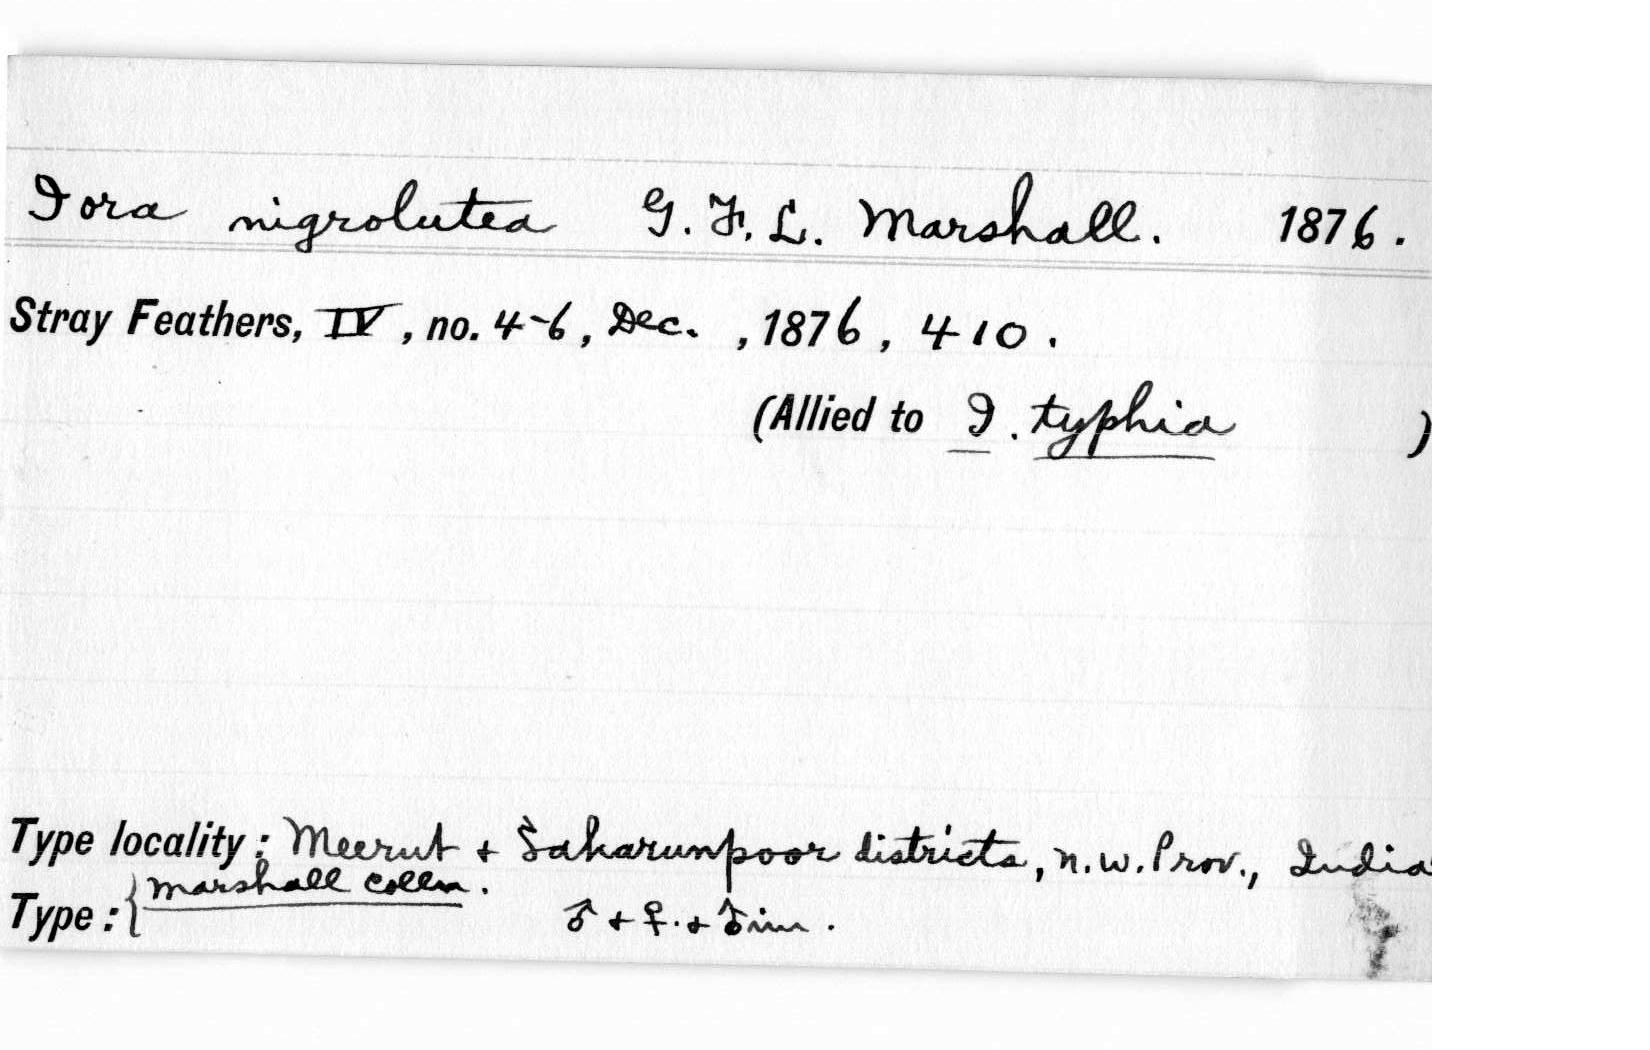 Iora nigrolutea G. F. L. Marshall. 1876.
Stray Feathers, IV, no. 4-6, Dec. , 1876, 410.
(Allied to I. typhia )
Type locality: Meerut + Saharunpoor districts, N.W. Prov., India
Type: { Marshall Colln.
♂ + ♀. + ♂ im.